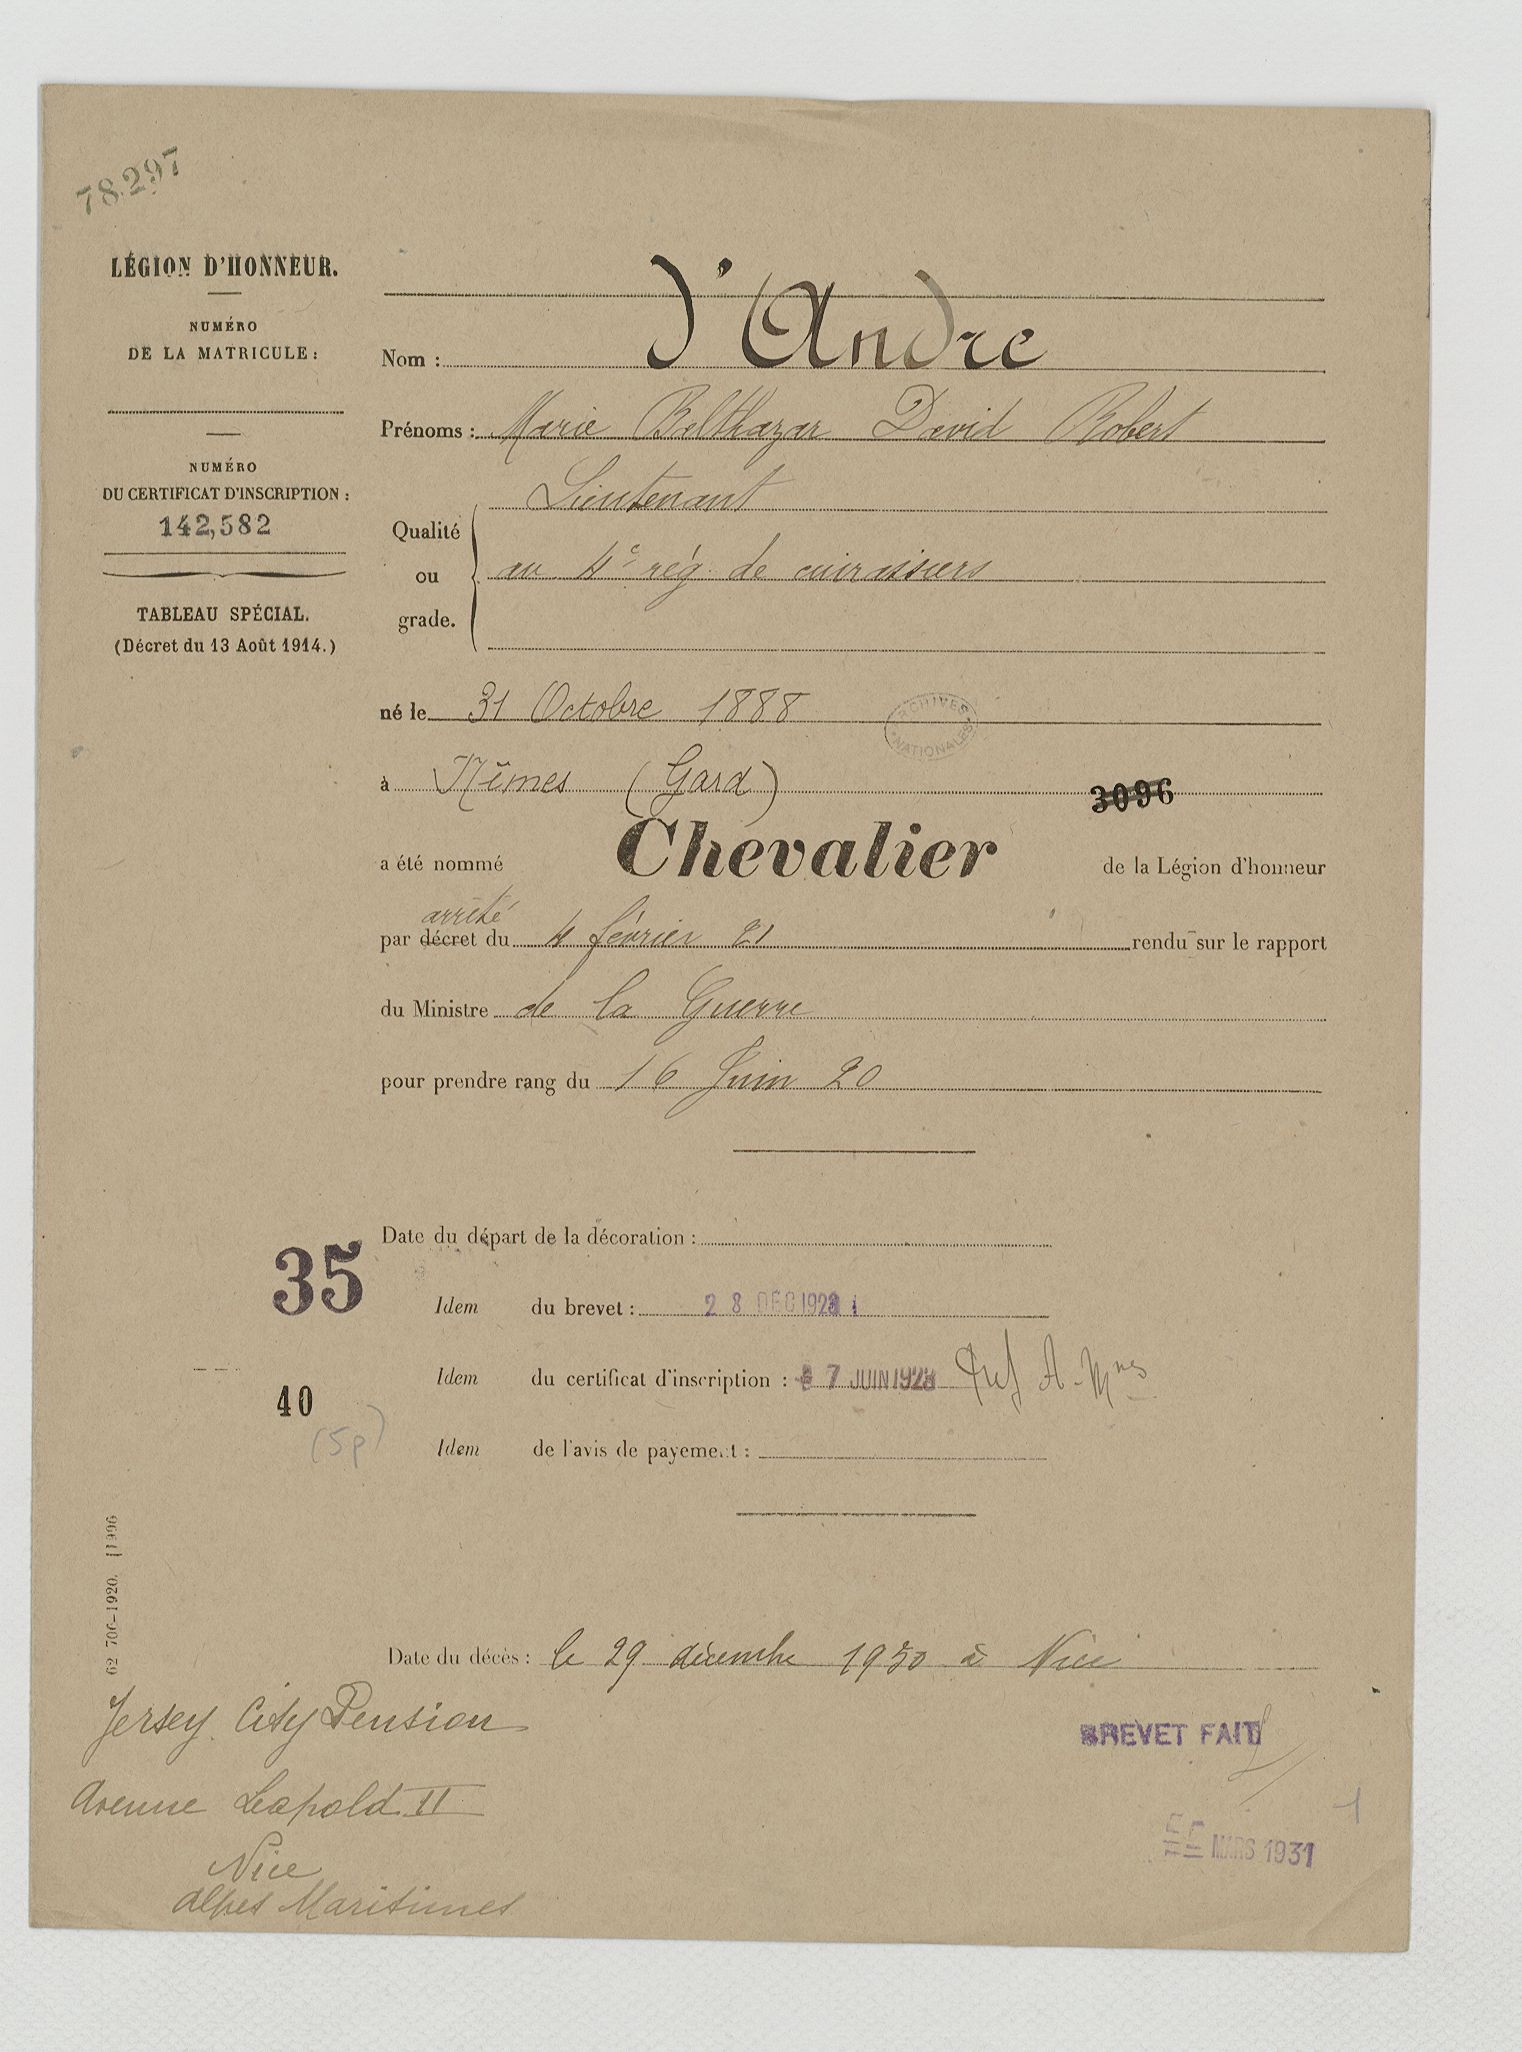 78.297
LÉGION D'HONNEUR.
NUMÉRO
DE LA MATRICULE :
NUMÉRO
DU CERTIFICAT D'INSCRIPTION :
142,582
TABLEAU SPÉCIAL.
(Décret du 13 Août 1914.)
Nom : d'Andre
Prénoms : Marie Balthazar David Robert
Qualité ou grade. Lieutenant
au 4e rég. de cuirassiers
né le 31 Octobre 1888
ARCHIVES NATIONALES
à Nîmes (Gard)
3096
a été nommé Chevalier de la Légion d'honneur
arrêté
par décret du 4 février 21 rendu sur le rapport
du Ministre de la Guerre
pour prendre rang du 16 Juin 20
Date du départ de la décoration :
35
Idem du brevet : 28 DEC 192
Idem du certificat d'inscription : 7 JUIN 1923 Pref A-Mmes
40
(5p)
Idem de l'avis de payement :
62 706-1920.
Date du décès : le 29 décembre 1930 à Nice
Jersey City Pension
Avenue Léopold II
Nice
Alpes Maritimes
BREVET FAIT
MARS 1931
1